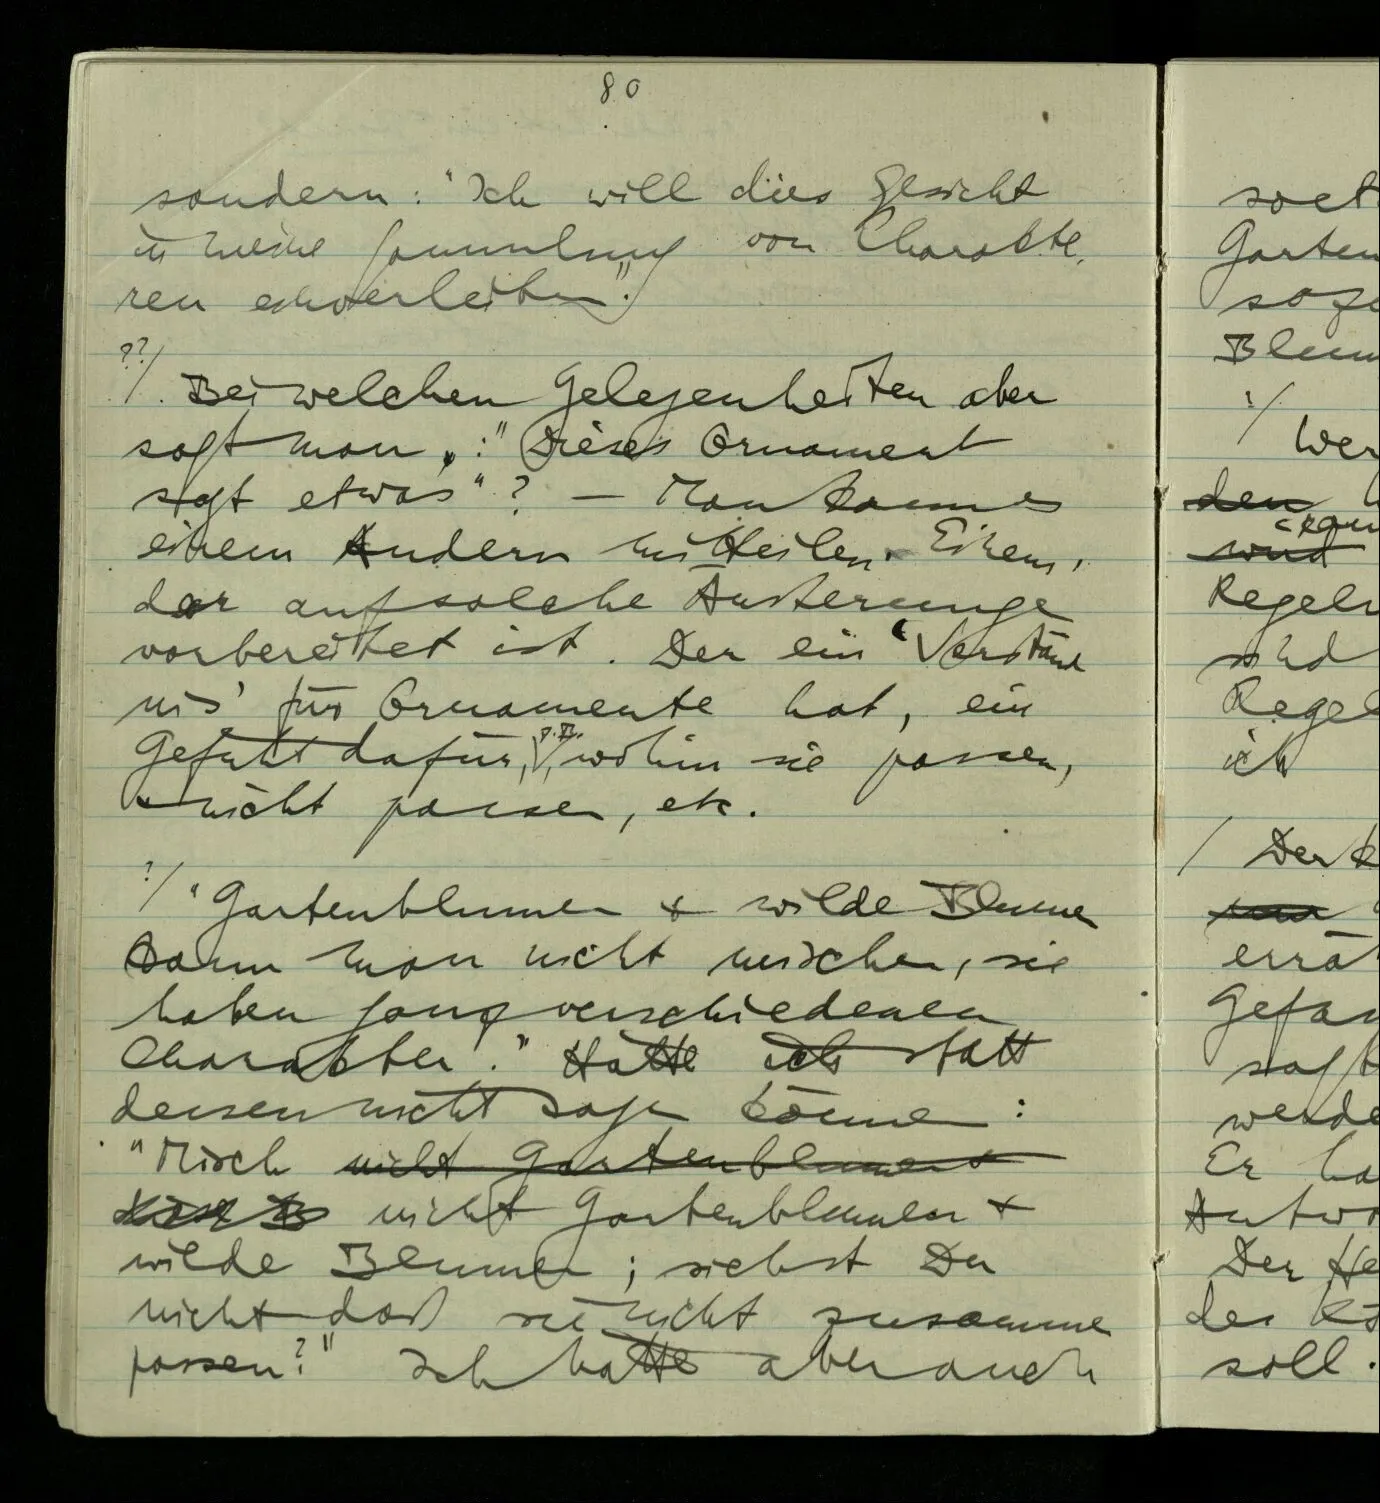 80
sondern: "Ich will dies Gesicht
in meine Sammlung von Charakte
ren einverleiben".
??/ Bei welchen Gelegenheiten aber
sagt man: "Dieses Ornament
sagt etwas"? – Man kann es
einem Andern mitteilen. Einem,
der auf solche Äusserunge
vorbereitet ist. Der ein 'Verständ
nis' für Ornamente hat, ein
z.B.
Gefühl dafür, wohin sie passen,
nicht passen, etc.
?/ "Gartenblumen & wilde Blumen
kann man nicht mischen, sie
haben ganz verschiedenen
Charakter." Hätte ich statt
dessen nicht sagen können:
"Misch nicht Gartenblumen &
nicht Gartenblumen &
wilde Blumen; siehst Du
nicht daß sie nicht zusamme
passen?" Ich hätte aber auch
soet
Garten
soge
Blum
/
Wer
den
wird
Regeln
sind
Regel
ich
/ Der k
errä
Gefan
sagt
werde
Er ha
Antwo
Der He
der Kö
soll.